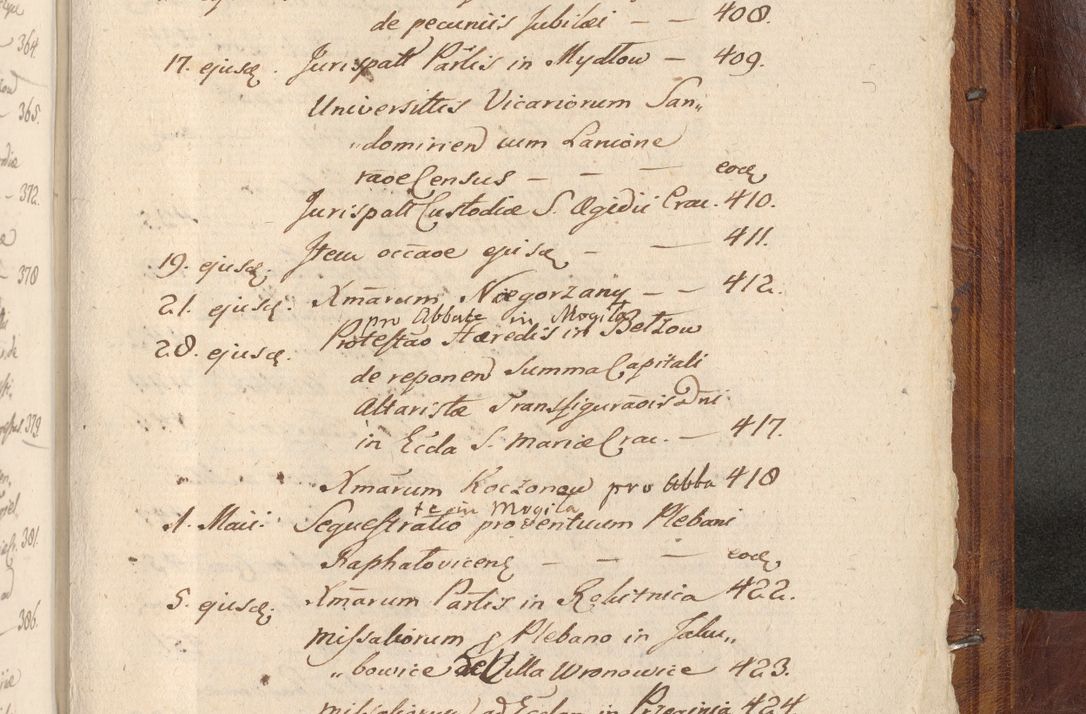 de pecuniis Jubilæi — — 408.
17. ejusq. Jurispatt Partis in Mydłow — 409.
Universittis Vicariorum San„
„domirien cum Lanione
raōe Census — — — eodq
Jurispatt Custodiæ S. Ægidii Crac. 410.
19. ejusq. Item occāoe ejusq — — 411.
21. ejusq. Xmārum Niegorzany — — 412.
pro Abbate in Mogiła
28. ejusq. Protestāo Hæredis in Betzow
de reponen Summa Capitali
Altaristæ Transfigurāois Dni
in Eccla S. Mariæ Crac. — 417.
Xmārum Koczonow pro Abba 418
te in Mogiła
1. Maii. Sequestratio proventuum Plebani
Raphałovicenq — — — eodq
5. ejusq. Xmārum Partis in Rokitnica 422.
Missaliorum Plebano in Jaku„
„bowice de Villa Wronowice 423.
Missaliorum ad Ecclam in Przeginia 424
364.
365.
372.
378
379.
381.
386.